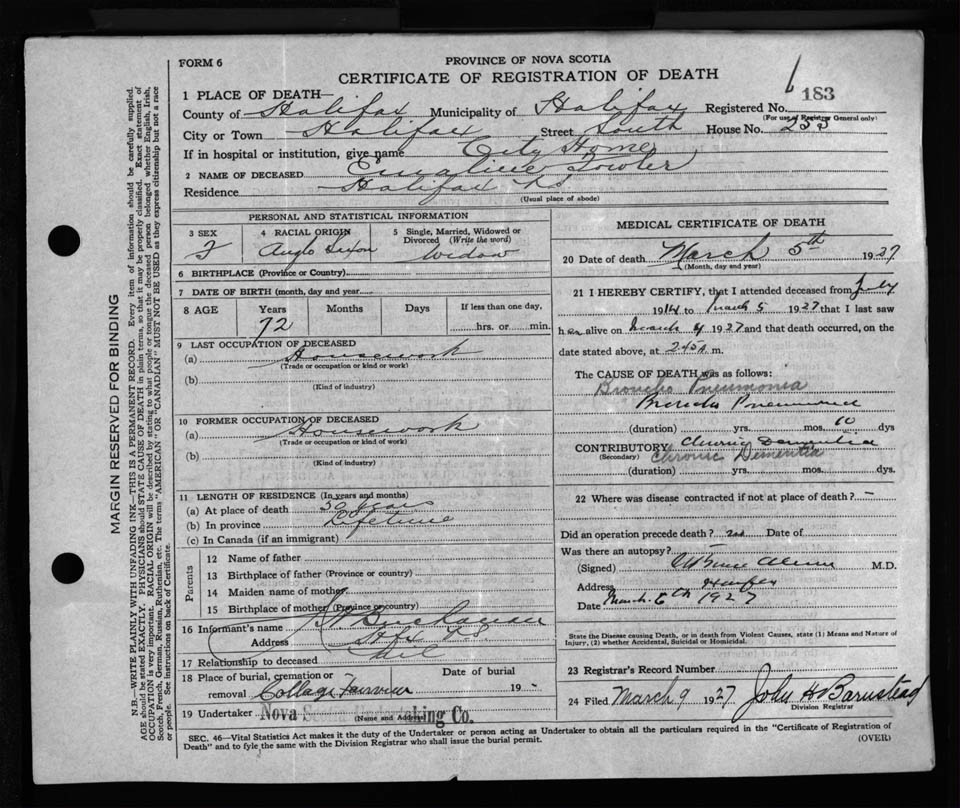 FORM 6
PROVINCE OF NOVA SCOTIA
CERTIFICATE OF REGISTRATION OF DEATH
183
1 PLACE OF DEATH—
County of Halifax Municipality of Halifax Registered No.
(For use of Registrar General only)
City or Town Halifax Street South House No. 233
If in hospital or institution, give name City Home
2 NAME OF DECEASED Emaline Fowler
Residence Halifax NS
(Usual place of abode)
PERSONAL AND STATISTICAL INFORMATION
3 SEX F
4 RACIAL ORIGIN Anglo Saxon
5 Single, Married, Widowed or Divorced (Write the word) Widow
6 BIRTHPLACE (Province or Country)
7 DATE OF BIRTH (month, day and year)
8 AGE Years Months Days If less than one day,
72 hrs. or min.
9 LAST OCCUPATION OF DECEASED
(a) Housework
(Trade or occupation or kind or work)
(b)
(Kind of industry)
10 FORMER OCCUPATION OF DECEASED
(a) Housework
(Trade or occupation or kind of work)
(b)
(Kind of industry)
11 LENGTH OF RESIDENCE (In years and months)
(a) At place of death
(b) In province Lifetime
(c) In Canada (if an immigrant)
Parents
12 Name of father
13 Birthplace of father (Province or country)
14 Maiden name of mother
15 Birthplace of mother (Province or country)
16 Informant's name Buchanan
Address Hfx NS
17 Relationship to deceased
18 Place of burial, cremation or Date of burial
removal College Fairview 19 -
19 Undertaker Nova Scotia Undertaking Co.
(Name and Address)
MEDICAL CERTIFICATE OF DEATH
20 Date of death March 5th 1927
(Month, day and year)
21 I HEREBY CERTIFY, that I attended deceased from July
1914 to March 5 1927 that I last saw
her alive on March 4 1927 and that death occurred, on the
date stated above, at 245 A m.
The CAUSE OF DEATH was as follows:
Broncho Pneumonia
Broncho Pneumonia
(duration) yrs. mos. 10 dys
CONTRIBUTORY Chronic Dementia
(Secondary) Chronic Dementia
(duration) yrs. mos. dys.
22 Where was disease contracted if not at place of death? -
Did an operation precede death? no Date of
Was there an autopsy?
(Signed) M.D.
Address Halifax
Date March 6th 1927
State the Disease causing Death, or in death from Violent Causes, state (1) Means and Nature of
Injury, (2) whether Accidental, Suicidal or Homicidal.
23 Registrar's Record Number
24 Filed March 9 1927 John H Barnstead
Division Registrar
SEC. 46—Vital Statistics Act makes it the duty of the Undertaker or person acting as Undertaker to obtain all the particulars required in the "Certificate of Registration of
Death" and to fyle the same with the Division Registrar who shall issue the burial permit.
(OVER)
MARGIN RESERVED FOR BINDING
N.B.—WRITE PLAINLY WITH UNFADING INK—THIS IS A PERMANENT RECORD. Every item of information should be carefully supplied.
AGE should be stated EXACTLY. PHYSICIANS should STATE CAUSE OF DEATH in plain terms, so that it may be properly classified. Exact statement of
OCCUPATION is very important. RACIAL ORIGIN will be described by stating to what people or tongue the deceased person belonged whether English, Irish,
Scotch, French, German, Russian, Ruthenian, etc. The terms "AMERICAN" OR "CANADIAN" MUST NOT BE USED as they express citizenship but not a race
or people. See instructions on back of Certificate.